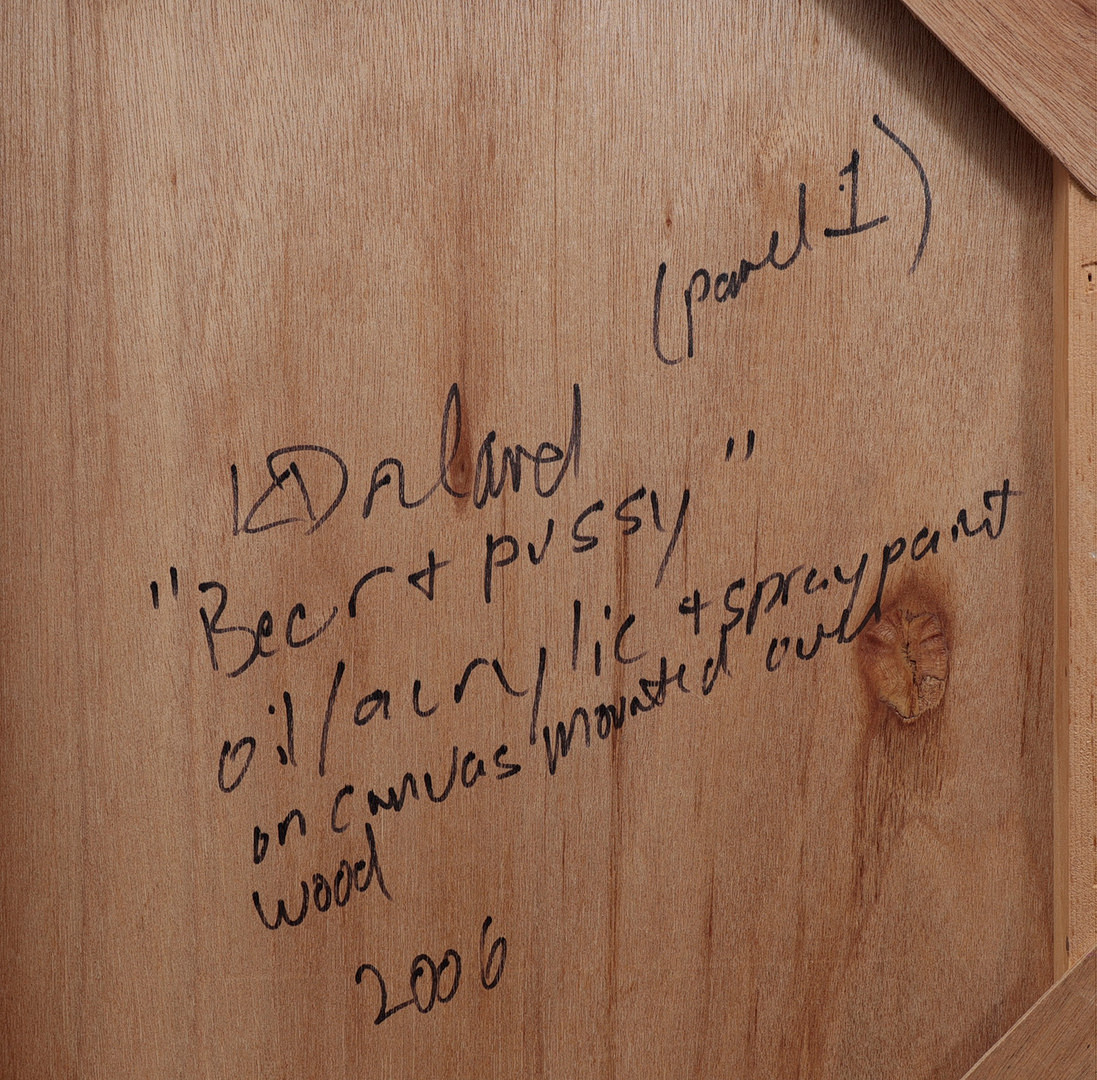 (panel 1)
"Beer + pussy"
oil/acrylic + spray paint
on canvas mounted over
wood
2006